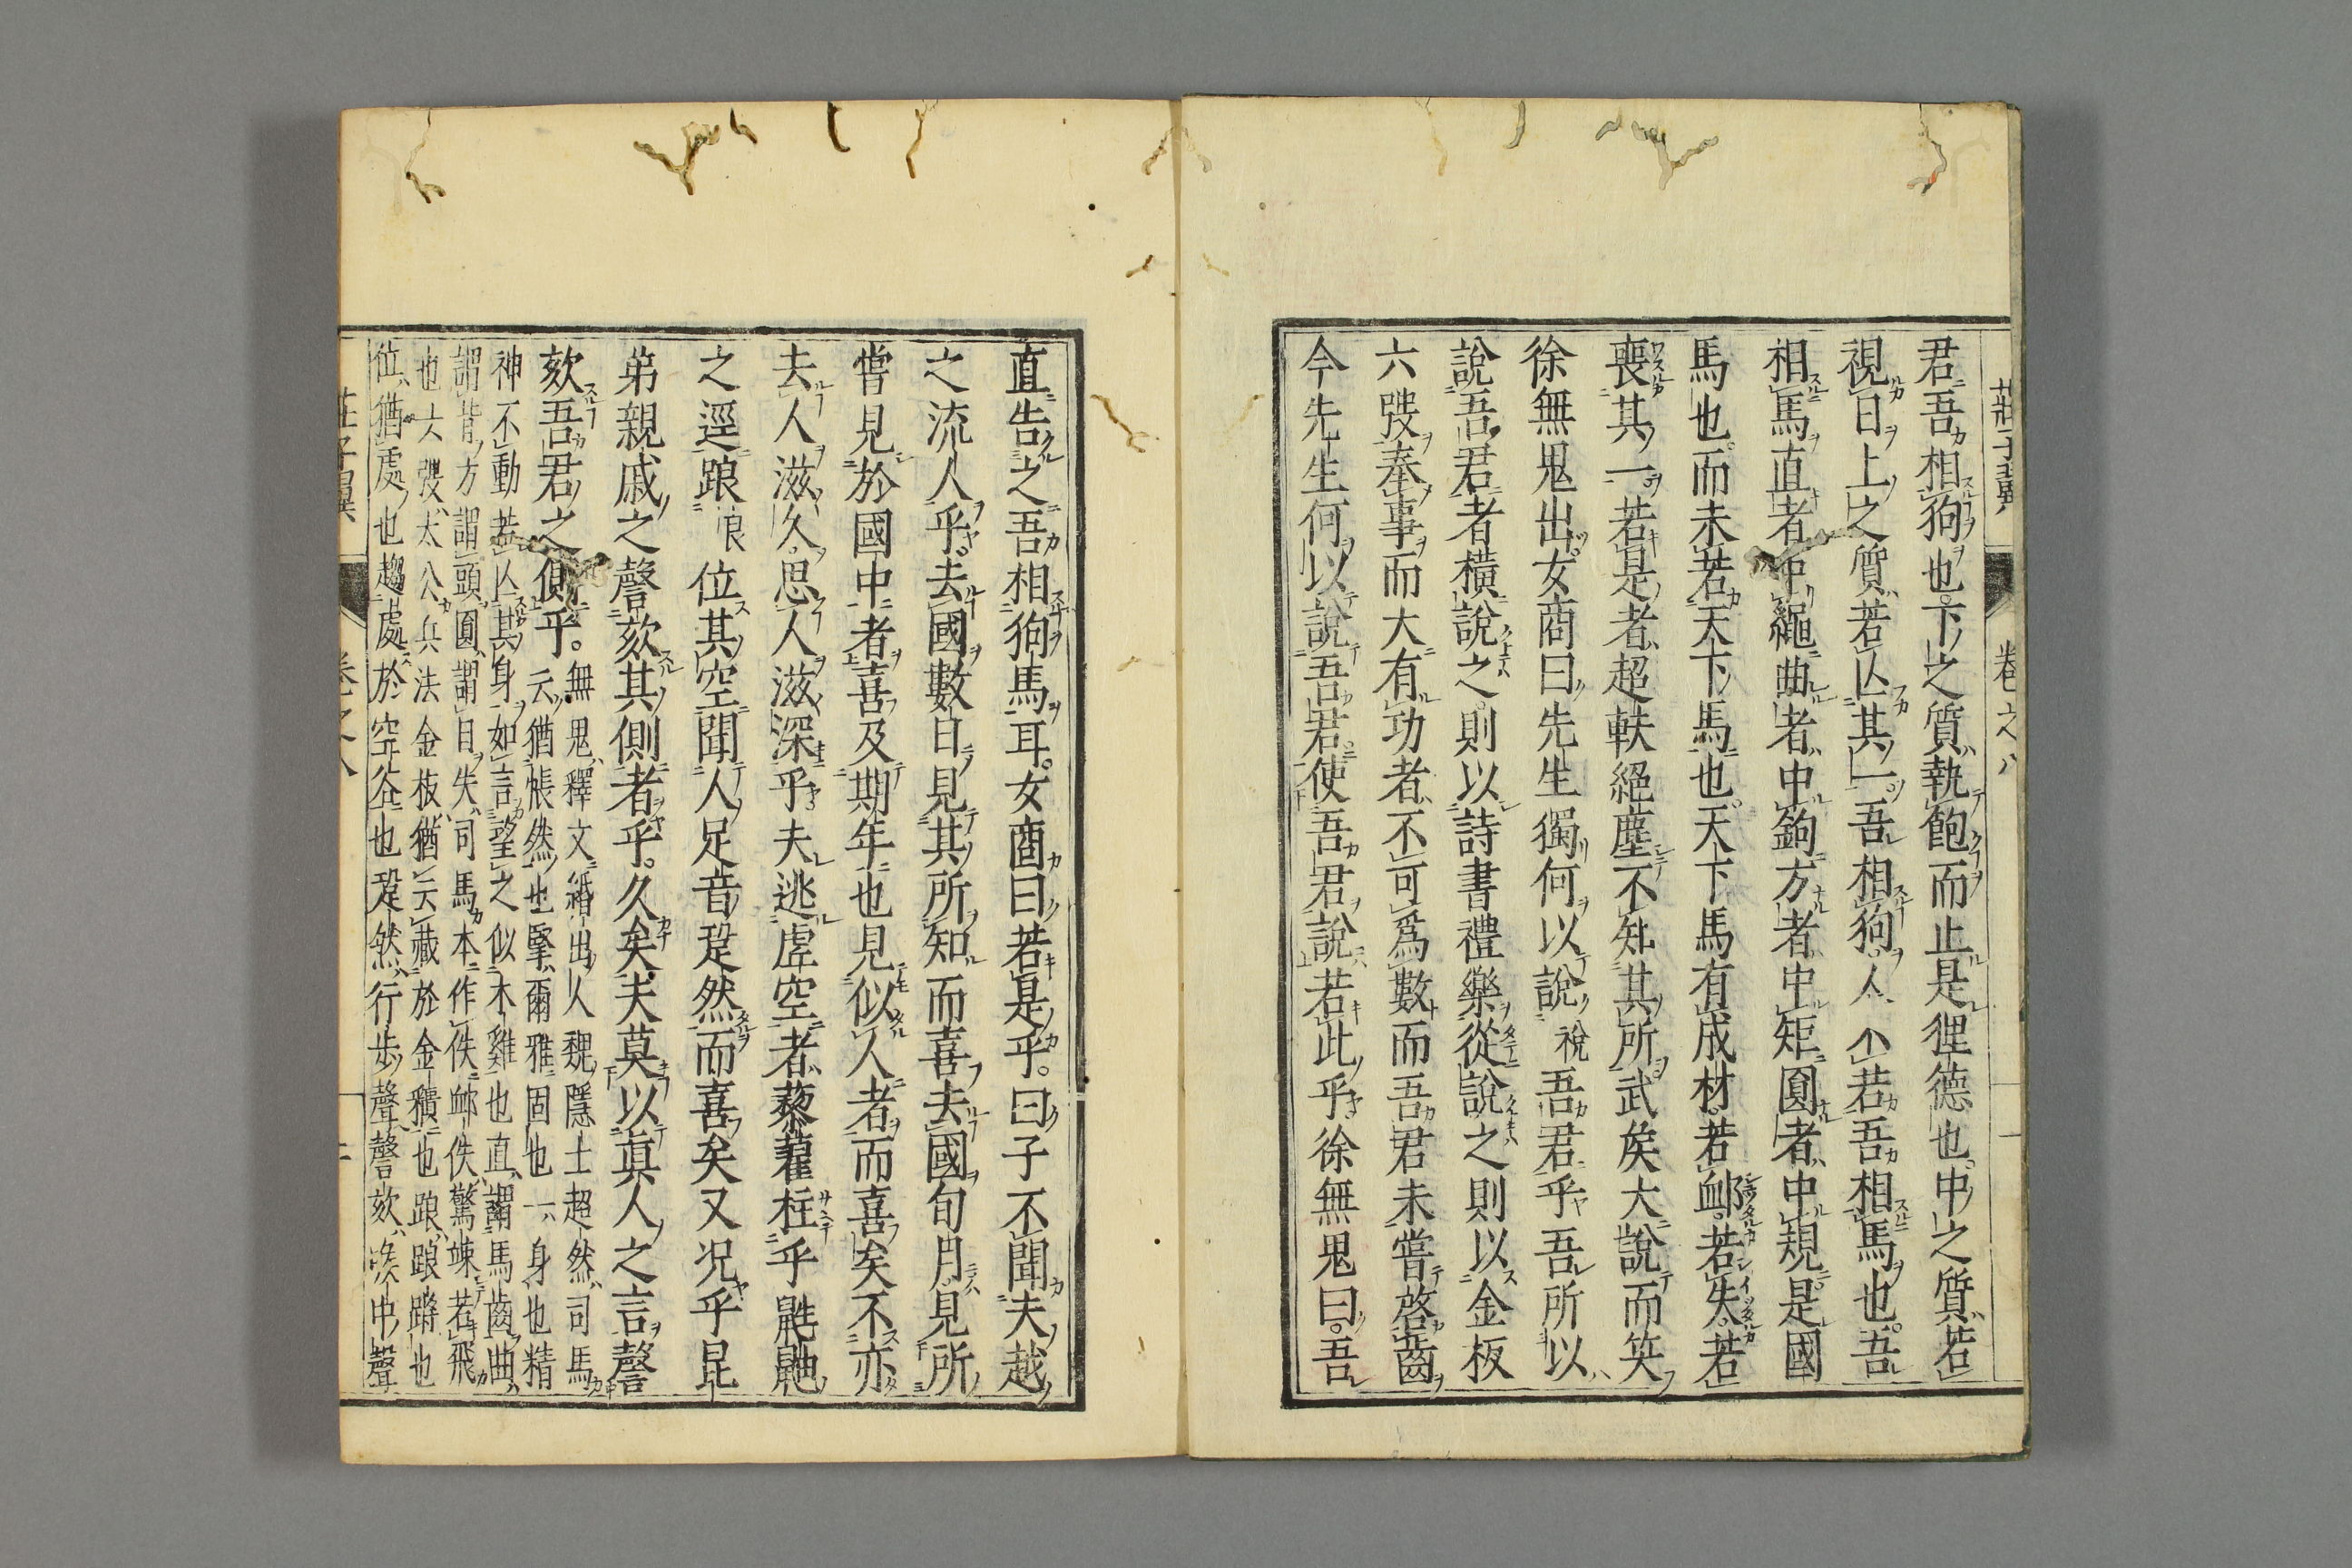 莊子翼 卷之八 一
君吾相狗也。下之質執飽而止是狸德也。中之質若
視日上之質若亾其一。吾相狗。人不若吾相馬也。吾
相馬直者中繩曲者中鉤方者中矩圓者中規是國
馬也。而未若天下馬也。天下馬有成材。若卹。若失。若
喪其一。若是者超軼絕塵不知其所。武矦大說而笑
徐無鬼出。女商曰先生獨何以說稅吾君乎吾所以
說吾君者橫說之。則以詩書禮樂從說之則以金板
六弢奉事而大有功者不可爲數而吾君未嘗啓齒
今先生何以說吾君。使吾君說若此乎。徐無鬼曰。吾
直告之吾相狗馬耳。女商曰若是乎。曰子不聞夫越
之流人乎。去國數日見其所知而喜去國旬月見所
嘗見於國中者喜及期年也見似人者而喜矣不亦
去人滋久。思人滋深乎夫逃虛空者藜藿柱乎鼪鼬
之逕踉浪位其空聞人足音跫然而喜矣又況乎昆
弟親戚之謦欬其側者乎。久矣夫莫以眞人之言謦
欬吾君之側乎。
無鬼釋文緡出人魏隱士超然司馬
云猶悵然也緊爾雅固也一身也精
神不動若亾其身如言望之似木雞也直謂馬齒曲
謂背方謂頭圓謂目失司馬本作佚卹佚驚竦若飛
也六弢太公兵法金板猶云藏於金積也踉踉蹡也
位猶處也趨處於空谷也跫然行步聲謦欬喉中聲
莊子翼 卷之八